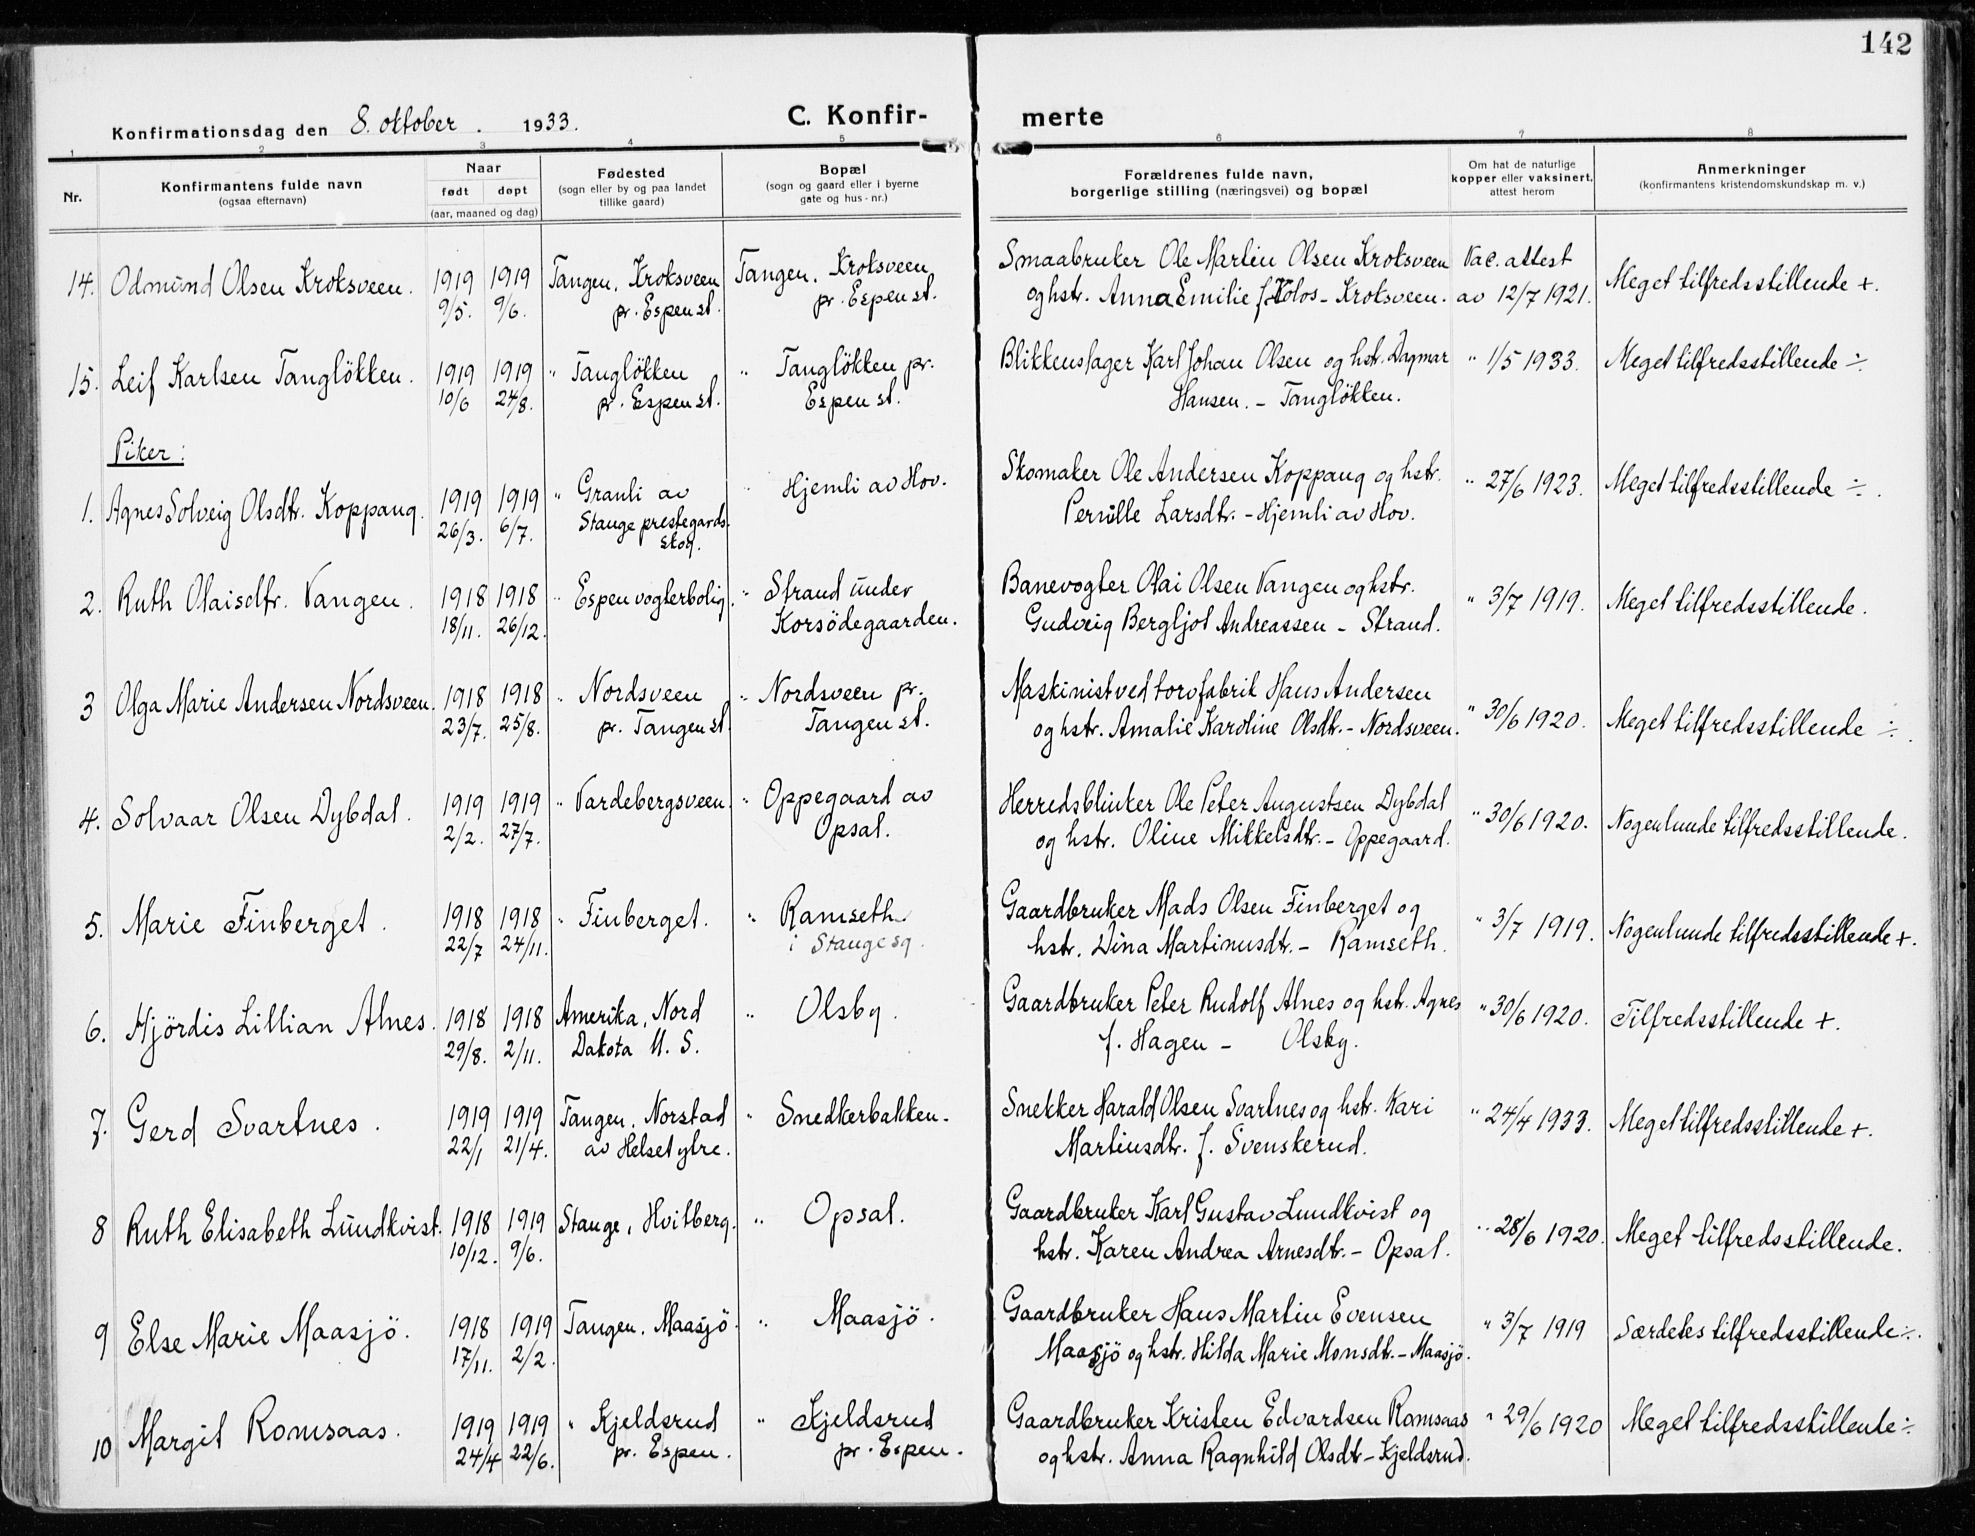 142
Konfirmationsdag den 8. oktober. 1933.
C. Konfirmerte
1 2 3 4 5 6 7 8
Nr.
Konfirmantens fulde navn
(ogsaa efternavn)
Naar
født døpt
(aar, maaned og dag)
Fødested
(sogn eller by og paa landet
tillike gaard)
Bopæl
(sogn og gaard eller i byerne
gate og hus-nr.)
Forældrenes fulde navn,
borgerlige stilling (næringsvei) og bopæl
Om hat de naturlige
kopper eller vaksinert,
attest herom
Anmerkninger
(konfirmantens kristendomskundskap m. v.)
14. Odmund Olsen Kroksveen. 1919 1919 Tangen, Kroksveen Tangen, Kroksveen Smaabruker Ole Martin Olsen Kroksveen Vac. attest Meget tilfredsstillende +.
9/5. 9/6. pr. Espen st. pr. Espen st. og hstr. Anna Emilie f. Kolos - Kroksveen. av 12/7 1921.
15. Leif Karlsen Tangløkken. 1919 1919 " Tangløkken " Tangløkken pr. Blikkenslager Karl Johan Olsen og hstr. Dagmar " 1/5 1933. Meget tilfredsstillende ÷
10/6 24/8. pr. Espen st. Espen st. Hansen. - Tangløkken.
Piker:
1. Agnes Solveig Olsdtr. Koppang. 1919 1919 " Granli av " Hjemli av Hov. Skomaker Ole Andersen Koppang og hstr. " 27/6 1923. Meget tilfredsstillende ÷.
26/3. 6/7. Stange prestegards Pernille Larsdtr. - Hjemli av Hov.
skog.
2. Ruth Olaisdtr. Vangen. 1918 1918 " Espen vogterbolig. " Strand under Banevogter Olai Olsen Vangen og hstr. " 3/7 1919. Meget tilfredsstillende.
18/11. 26/12. Korsødegaarden. Gudveig Bergljot Andreassen - Strand.
3 Olga Marie Andersen Nordsveen. 1918 1918 " Nordsveen " Nordsveen pr. Maskinist ved torvfabrik Hans Andersen " 30/6 1920. Meget tilfredsstillende ÷.
23/7. 25/8. pr. Tangen st. Tangen st. og hstr. Amalie Karoline Olsdtr. - Nordsveen.
4. Solvaar Olsen Dybdal. 1919 1919 " Vardebergsveen. " Oppegaard av Herredsblinker Ole Peter Augustsen Dybdal " 30/6 1920. Nogenlunde tilfredsstillende.
2/2. 27/7. Opsal. og hstr. Oline Mikkelsdtr. - Oppegaard.
5. Marie Finberget. 1918 1918 " Finberget. " Ramseth Gaardbruker Mads Olsen Finberget og " 3/7 1919. Nogenlunde tilfredsstillende +.
22/7 24/11. i Stange sg. hstr. Dina Martinusdtr. - Ramseth.
6. Hjørdis Lillian Alnes. 1918 1918 Amerika, Nord " Olsby. Gaardbruker Peter Rudolf Alnes og hstr. Agnes " 30/6 1920. Tilfredsstillende +.
29/8. 2/11. Dakota U. S. f. Hagen - Olsby.
7. Gerd Svartnes. 1919 1919 Tangen, Norstad " Snedkerbakken. Snekker Harald Olsen Svartnes og hstr. Kari " 24/4 1933. Meget tilfredsstillende +.
22/1 21/4. av Helset ytre. Martinsdtr. f. Svenskerud.
8 Ruth Elisabeth Lundkvist. 1918 1919 Stange, Hvitberg. " Opsal. Gaardbruker Karl Gustav Lundkvist og " 28/6 1920. Meget tilfredsstillende.
10/12. 9/6. hstr. Karen Andrea Arnesdtr. - Opsal.
9 Else Marie Maasjö. 1918 1919 Tangen, Maasjö. " Maasjö. Gaardbruker Hans Martin Evensen " 3/7 1919 Særdeles tilfredsstillende ÷.
17/11. 2/2. Maasjö og hstr. Hilda Marie Monsdtr. - Maasjö.
10 Margit Romsaas. 1919 1919 " Kjeldsrud " Kjeldsrud Gaardbruker Kristen Edvardsen Romsaas " 29/6 1920 Meget tilfredsstillende ÷
24/4 22/6. pr. Espen. pr. Espen. og hstr. Anna Ragnhild Olsdtr - Kjeldsrud.